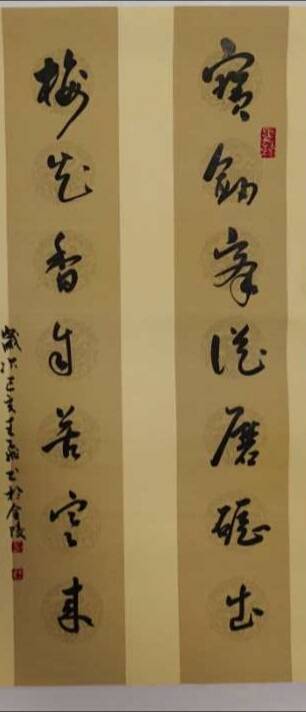 寶劍鋒從磨礪出
梅花香自苦寒來
歲次己亥春書於金陵